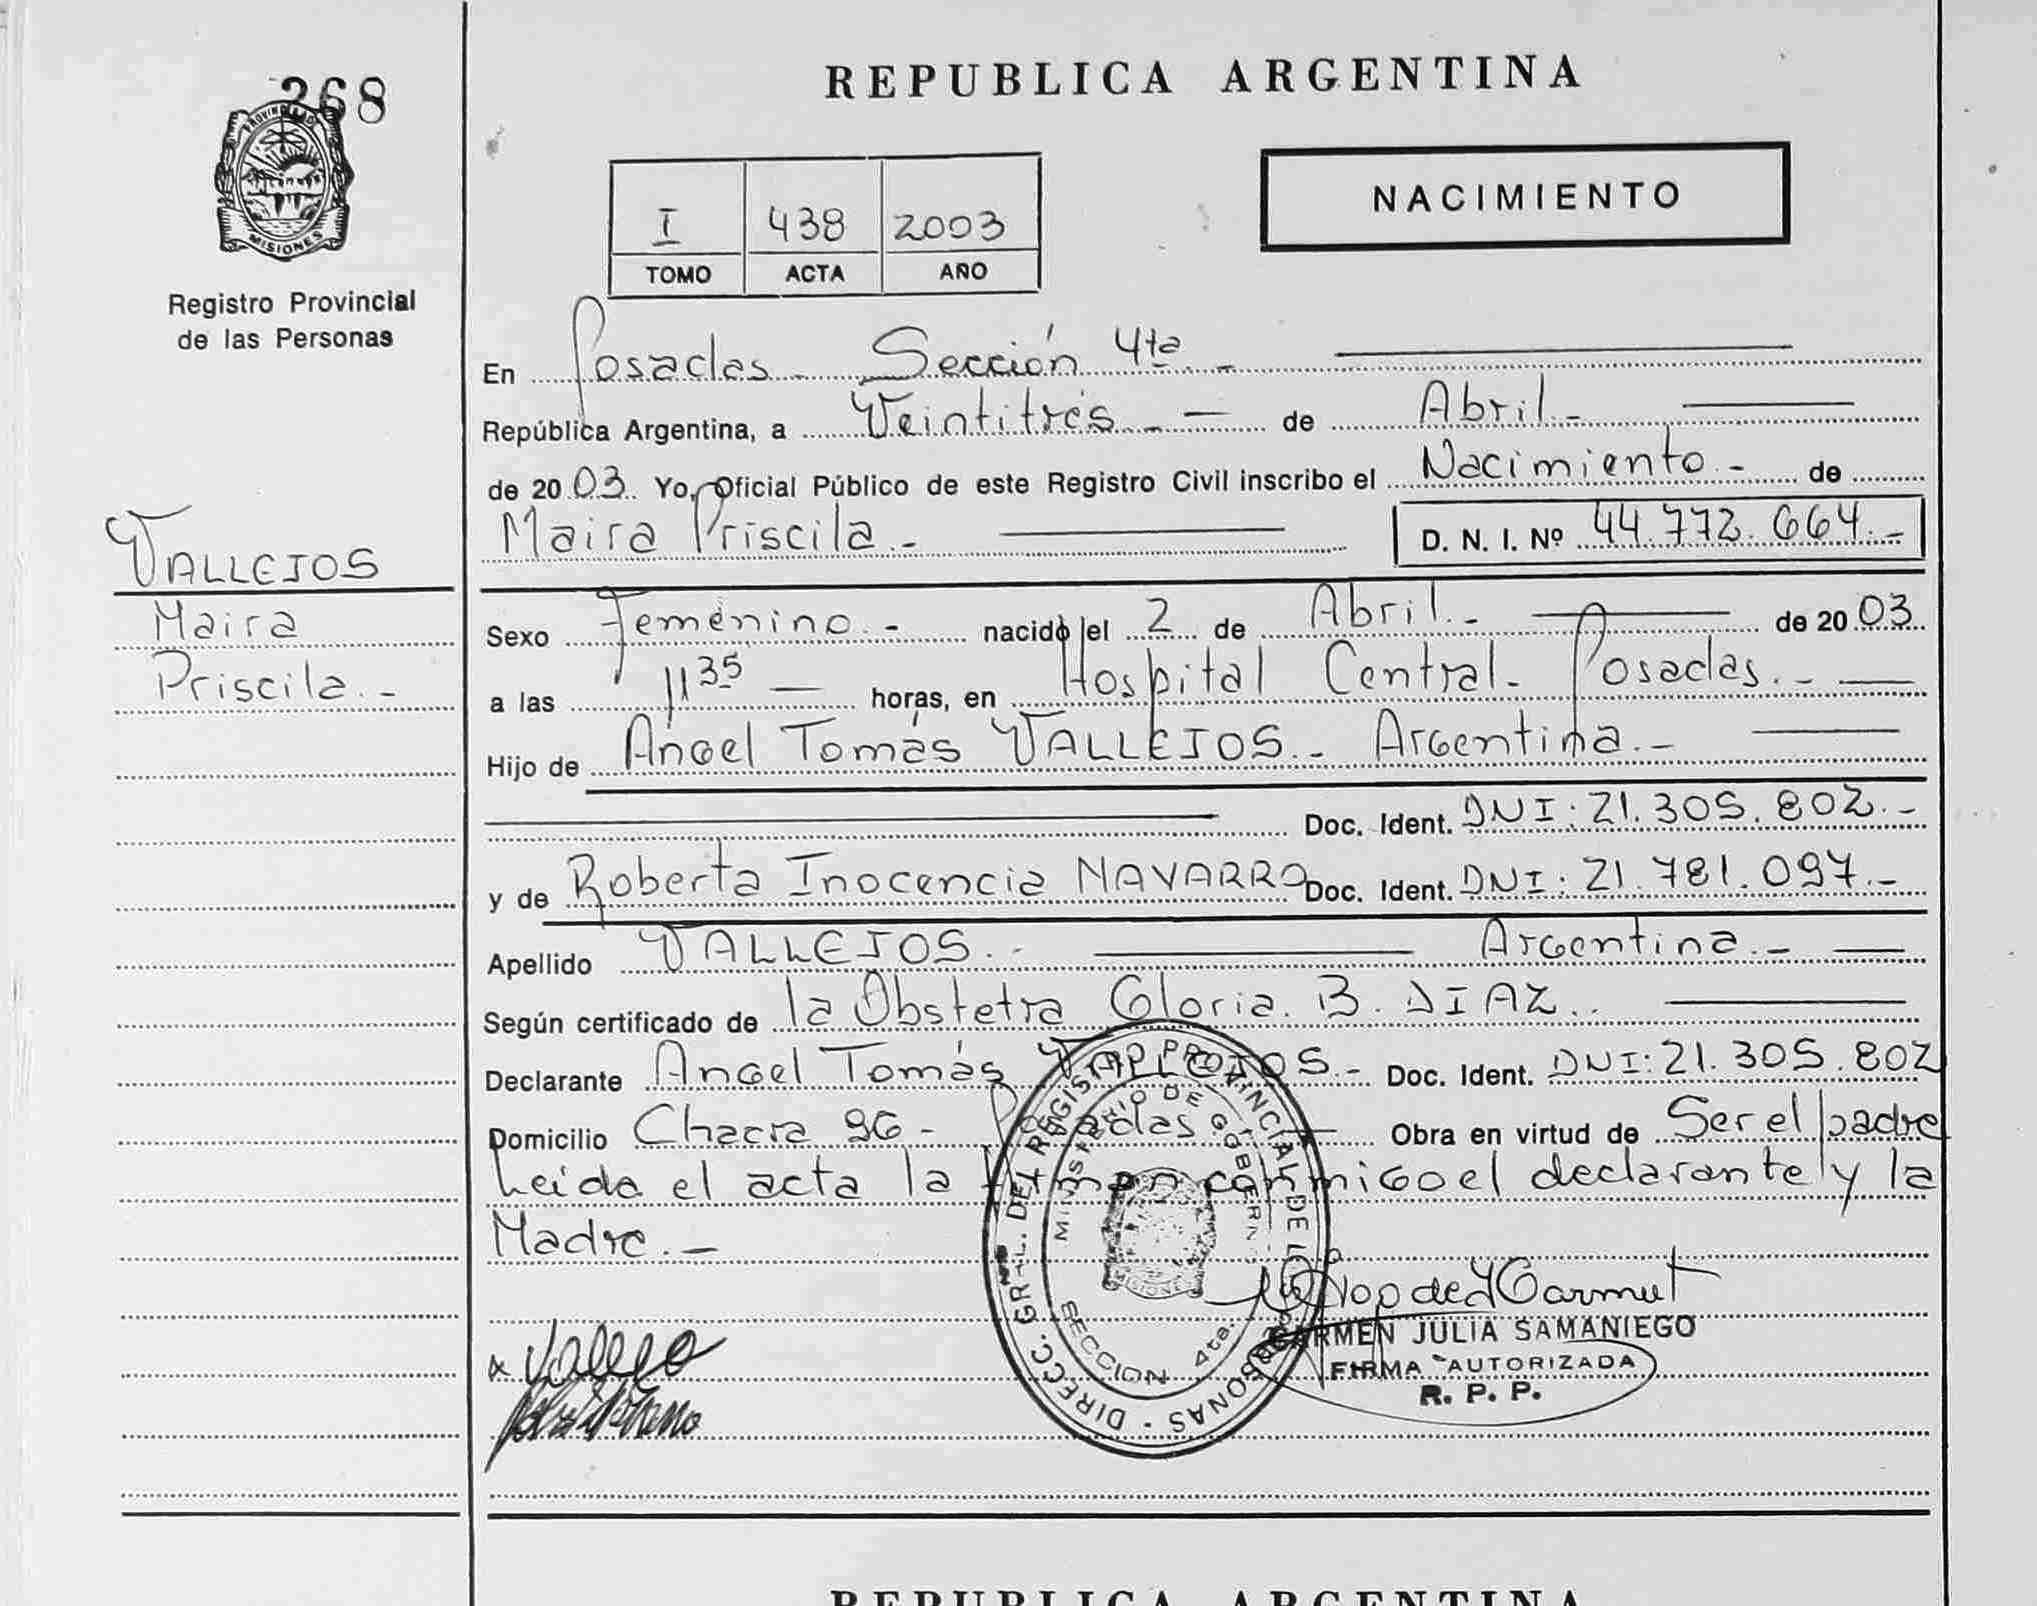 268
PROVINCIA
MISIONES
Registro Provincial
de las Personas
VALLEJOS
Maira
Priscila.-
REPUBLICA ARGENTINA
I 438 2003
TOMO ACTA AÑO
NACIMIENTO
En Posadas - Sección 4ta -
República Argentina, a Veintitrés.- de Abril.-
de 2003. Yo, Oficial Público de este Registro Civil inscribo el Nacimiento.- de
Maira Priscila.- D. N. I. Nº 44.772.664.-
Sexo Femenino.- nacido el 2 de Abril.- de 2003.
a las 11 35 horas, en Hospital Central - Posadas.-
Hijo de Angel Tomás VALLEJOS.- Argentina.-
Doc. Ident. DNI: 21.305.802.-
y de Roberta Inocencia NAVARRO Doc. Ident. DNI: 21.781.097.-
Apellido VALLEJOS.- Argentina.-
Según certificado de la Obstetra Gloria. B. DIAZ..
Declarante Angel Tomás VALLEJOS.- Doc. Ident. DNI: 21.305.802
Domicilio Chacra 96 - Posadas.- Obra en virtud de Ser el padre
Leida el acta la firman conmigo el declarante y la
Madre.-
DIRECC. GRAL. DEL REGISTRO PROVINCIAL DE LAS PERSONAS
MINISTERIO DE GOBIERNO
MISIONES
SECCION 4ta.
CARMEN JULIA SAMANIEGO
FIRMA AUTORIZADA
R. P. P.
REPUBLICA ARGENTINA